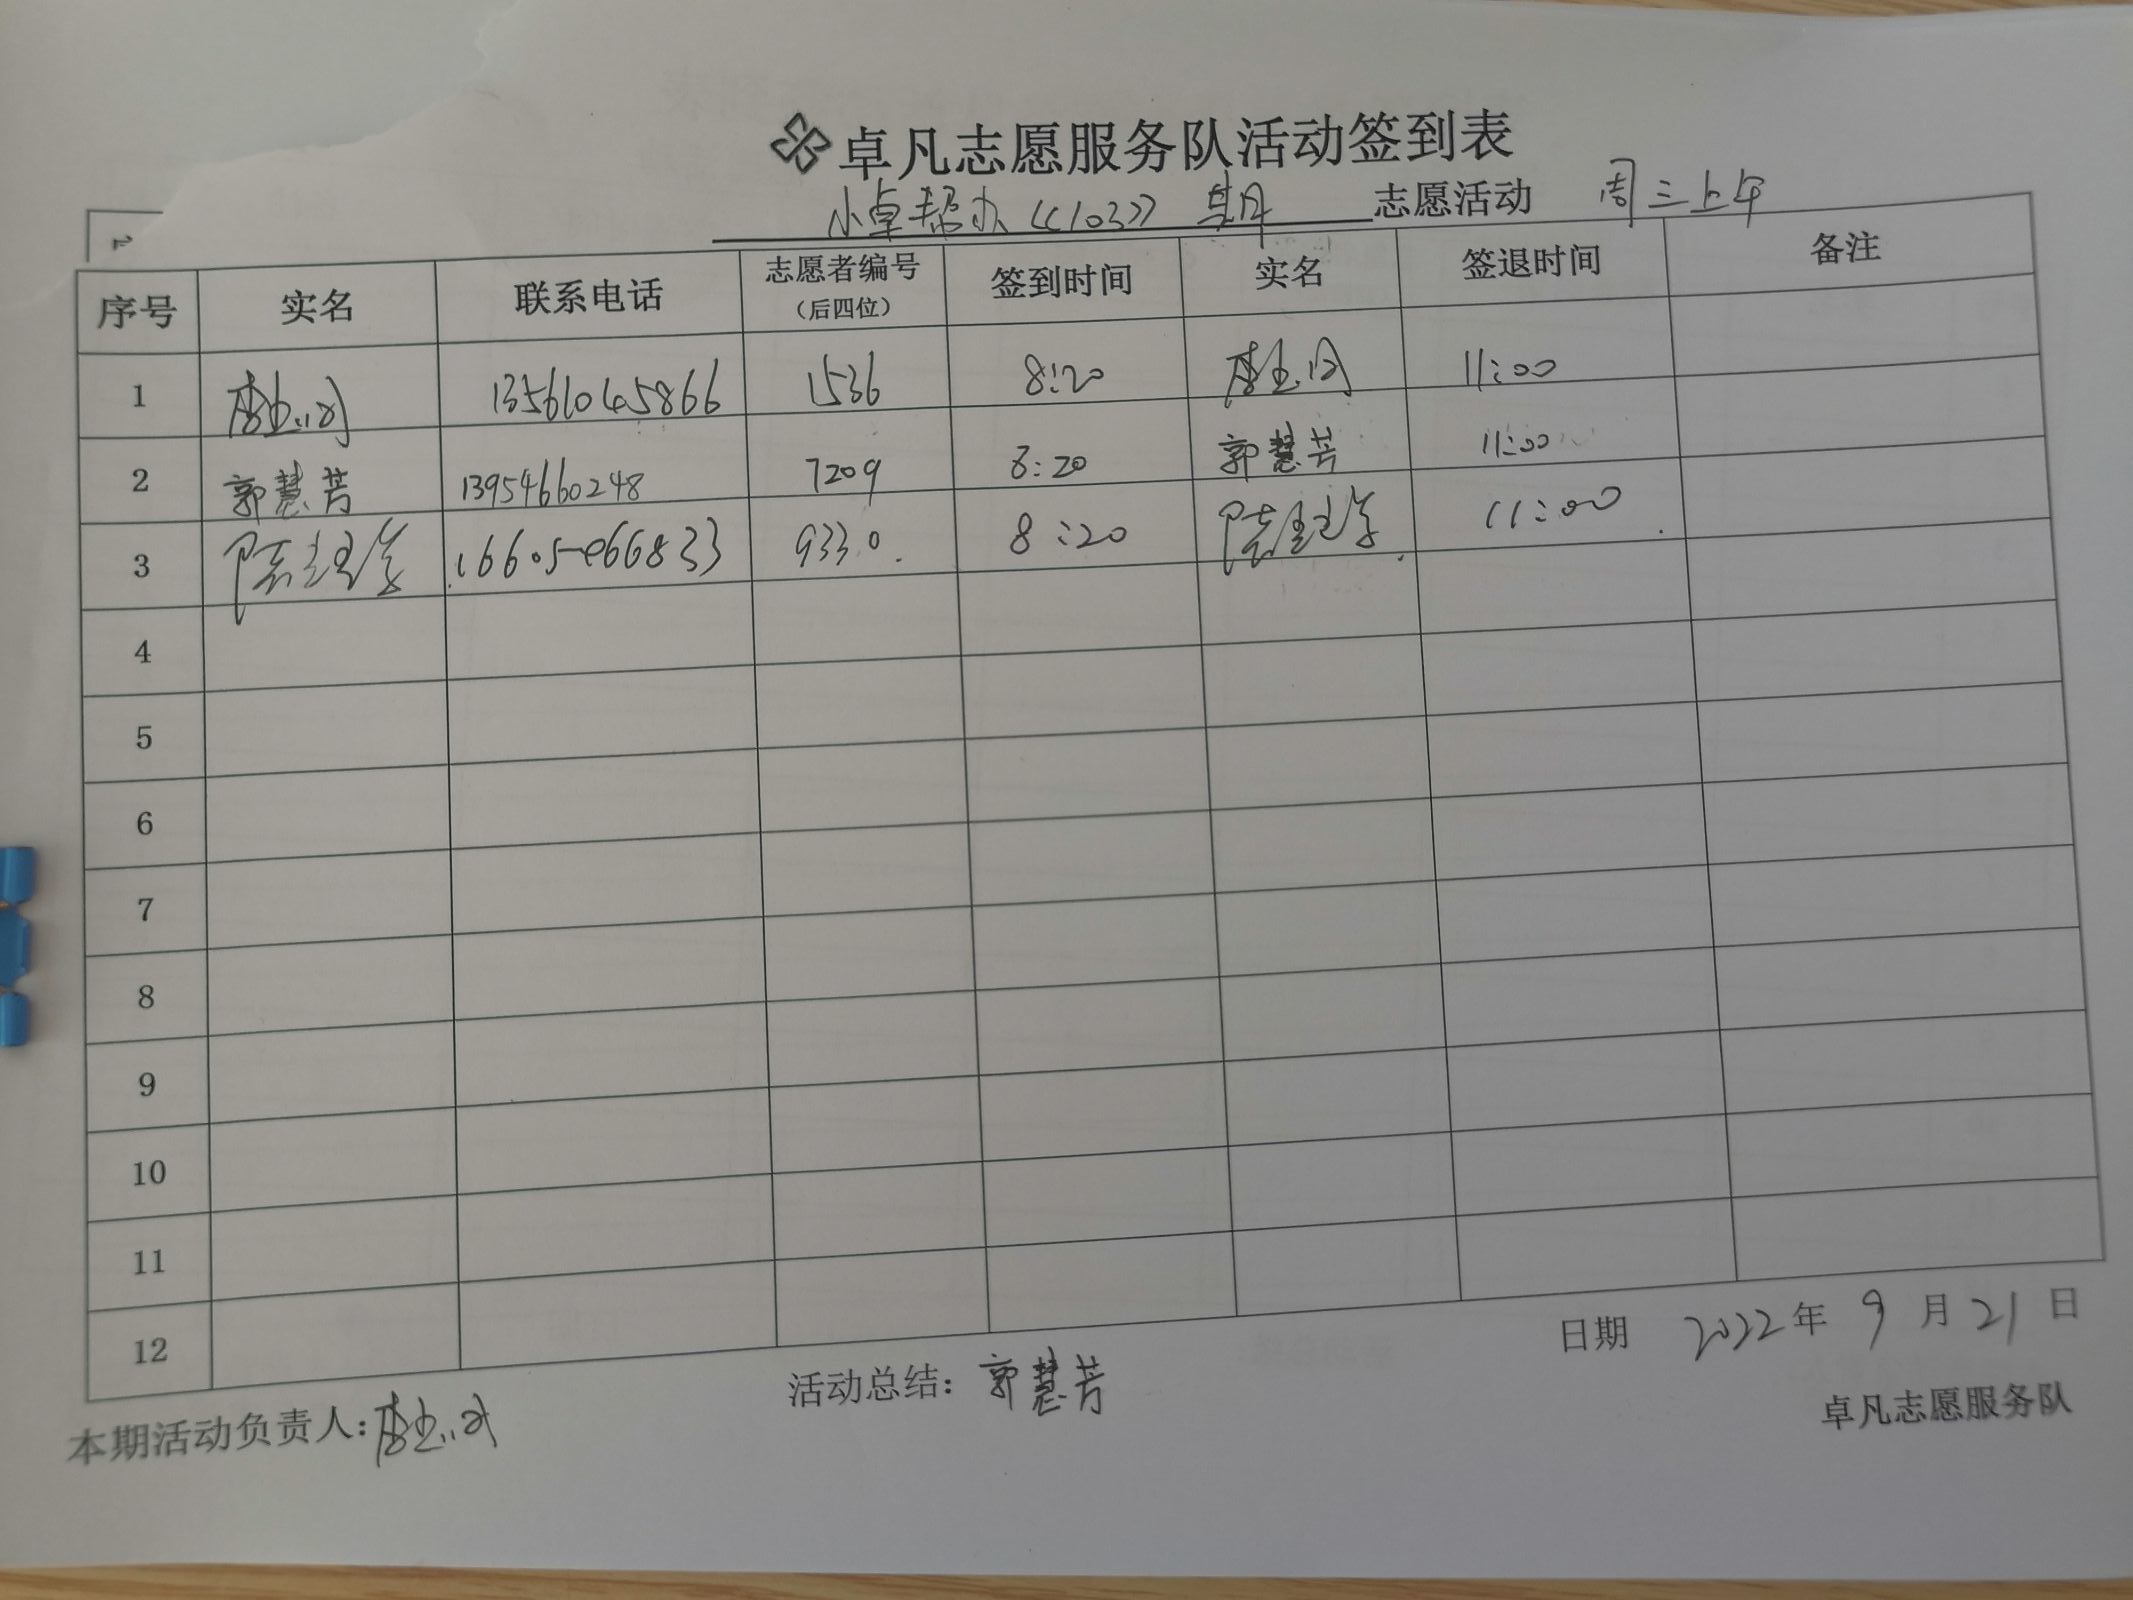 卓凡志愿服务队活动签到表
小卓帮办《103》期 志愿活动 周三上午
序号 实名 联系电话 志愿者编号（后四位） 签到时间 实名 签退时间 备注
1 13561045866 1536 8:20 11:00
2 郭慧芳 13954660248 7209 8:20 郭慧芳 11:00
3 16605066833 9330 8:20 11:00
4
5
6
7
8
9
10
11
12
日期 2022年9月21日
本期活动负责人: 活动总结：郭慧芳
卓凡志愿服务队